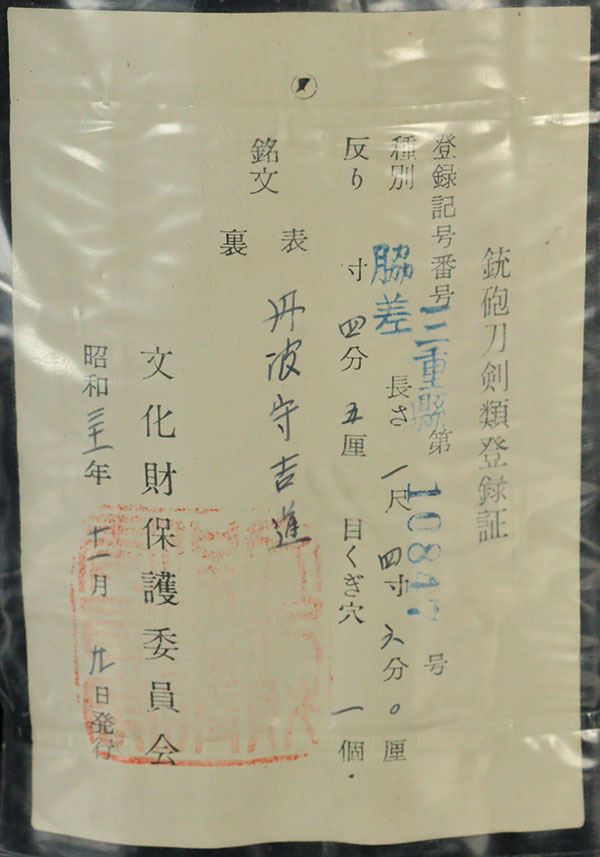 銃砲刀剣類登録証
登録記号番号 三重縣 第 10847 号
種別 脇差 長さ 一尺 四寸 六分 〇厘
反り 寸 四分 五厘 目くぎ穴 一個
銘文 表 丹波守吉道
裏
文化財保護委員会
昭和 三十一年 十一月 九日発行